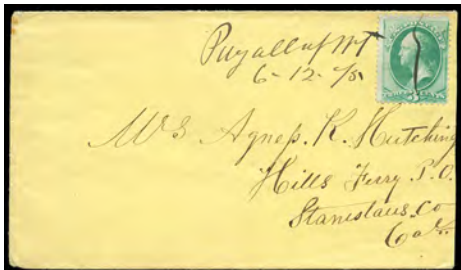 Puyallup WT
6-12-75
Mrs Agness. K. Hutching
Hills Ferry P.O.
Stanislaus. Co
Cal.